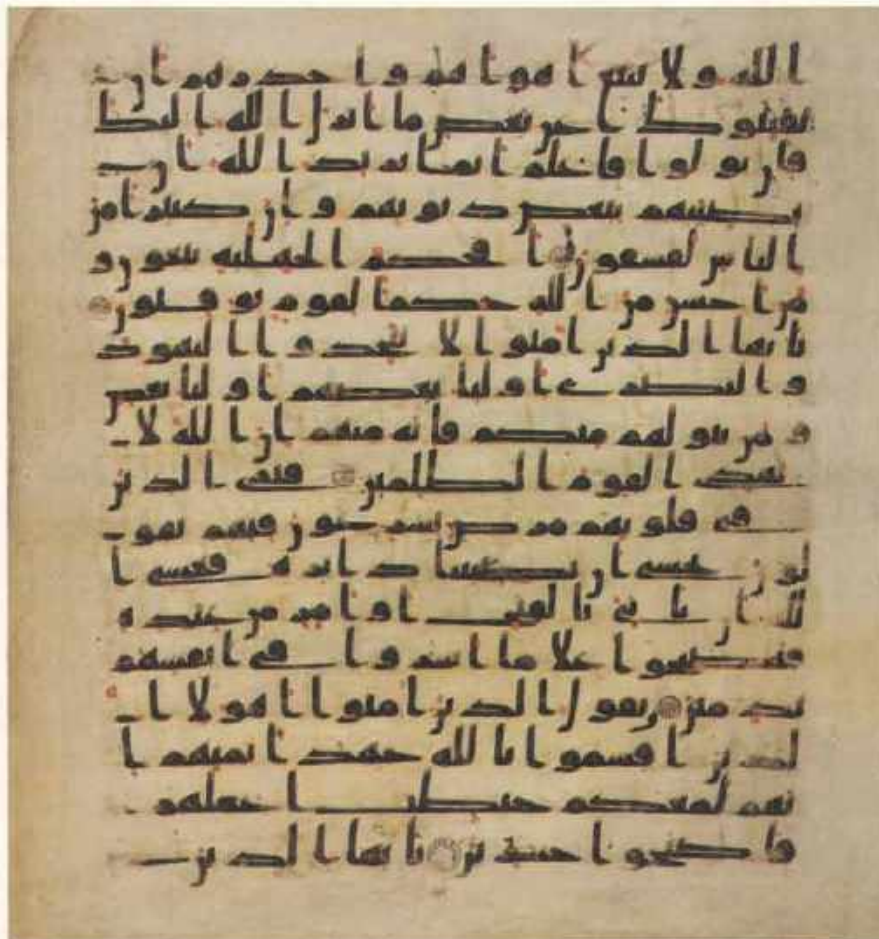 الله ولا تتبع اهواهم واحذرهم ان
يفتنوك عن بعض ما انزل الله اليك
فان تولوا فاعلم انما يريد الله ان
يصيبهم ببعض ذنوبهم وان كثيرا من
الناس لفسقون افحكم الجهلية يبغون و
من احسن من الله حكما لقوم يوقنون
يايها الذين امنوا لا تتخذوا اليهود
والنصرى اوليا بعضهم اوليا بعض
ومن يتولهم منكم فانه منهم ان الله لا
يهدي القوم الظلمين فترى الذين
في قلوبهم مرض يسرعون فيهم يقو
لون نخشى ان تصيبنا دايرة فعسى ا
لله ان ياتي بالفتح او امر من عنده
فيصبحوا علا ما اسروا في انفسهم
ندمين ويقول الذين امنوا اهولا ا
لذين اقسموا بالله جهد ايمنهم ا
نهم لمعكم حبطت اعملهم
فاصبحوا خسرين يايها الذين